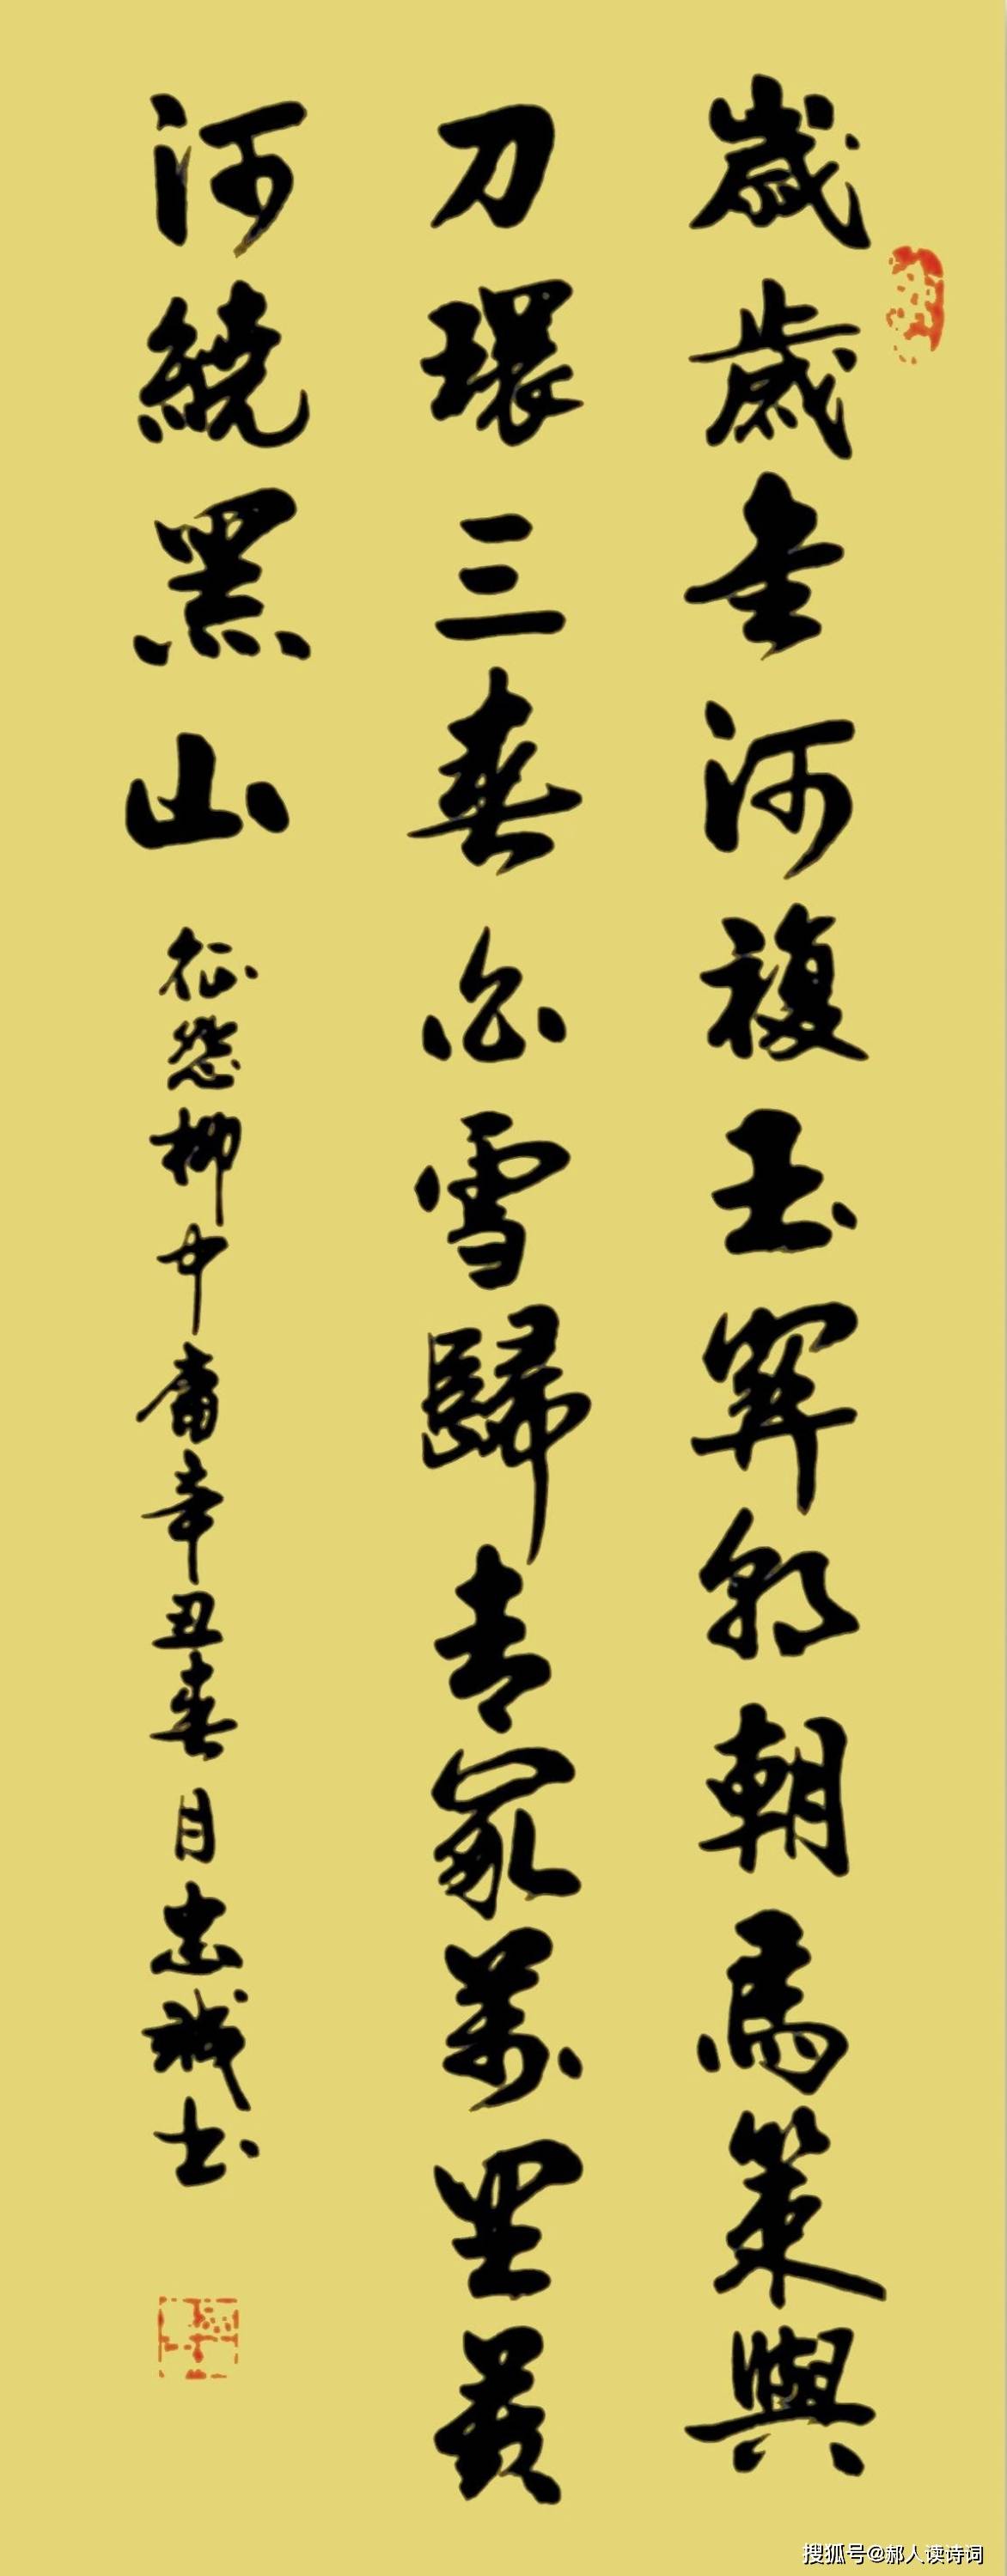 歲歲金河復玉關朝朝馬策與
刀環三春白雪歸青冢萬里黃
河繞黑山
征怨柳中庸辛丑春月忠誠书
搜狐号@郝人读诗词